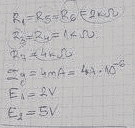 R₁=R₅=R₆=2kΩ
R₃=R₄=1kΩ
R₂=4kΩ
Ig=4mA=4A·10⁻³
E₁=2V
E₂=5V